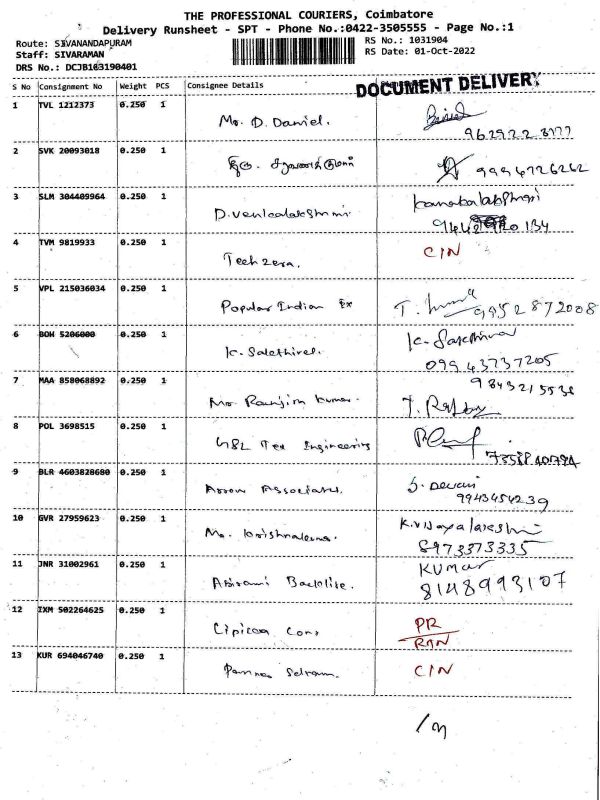 THE PROFESSIONAL COURIERS, Coimbatore
Delivery Runsheet - SPT - Phone No.:0422-3505555 - Page No.:1
Route: SIVANANDAPURAM
RS No.: 1031904
Staff: SIVARAMAN
RS Date: 01-Oct-2022
DRS No.: DCJB103190401
DOCUMENT DELIVERY
S No Consignment No Weight PCS Consignee Details
1 TVL 1212373 0.250 1
Mr. D. Daniel.
2 SVK 20093018 0.250 1
திரு. சரவணக்குமார்
9994726262
3 SLM 304409964 0.250 1
D. Venkalakshmi
4 TVM 9819933 0.250 1 CIN
Techzera.
5 VPL 215036034 0.250 1
Popular Indian Ex
9952872008
6 BOM 5206000 0.250 1
K. Sakthivel.
09943737205
7 MAA 858068892 0.250 1
9843215538
Mr. Ranjim kumar.
8 POL 3698515 0.250 1
Tex Engineering
9 BLR 4603828680 0.250 1
S. Devan
Arrow Associates.
9943454239
10 GVR 27959623 0.250 1
K. Vijayalakshmi
8973373335
11 JNR 31002961 0.250 1 KUMAR
Abirami Backlite.
8148993107
12 IXM 502264625 0.250 1
PR
RAN
13 KUR 694046740 0.250 1
CIN